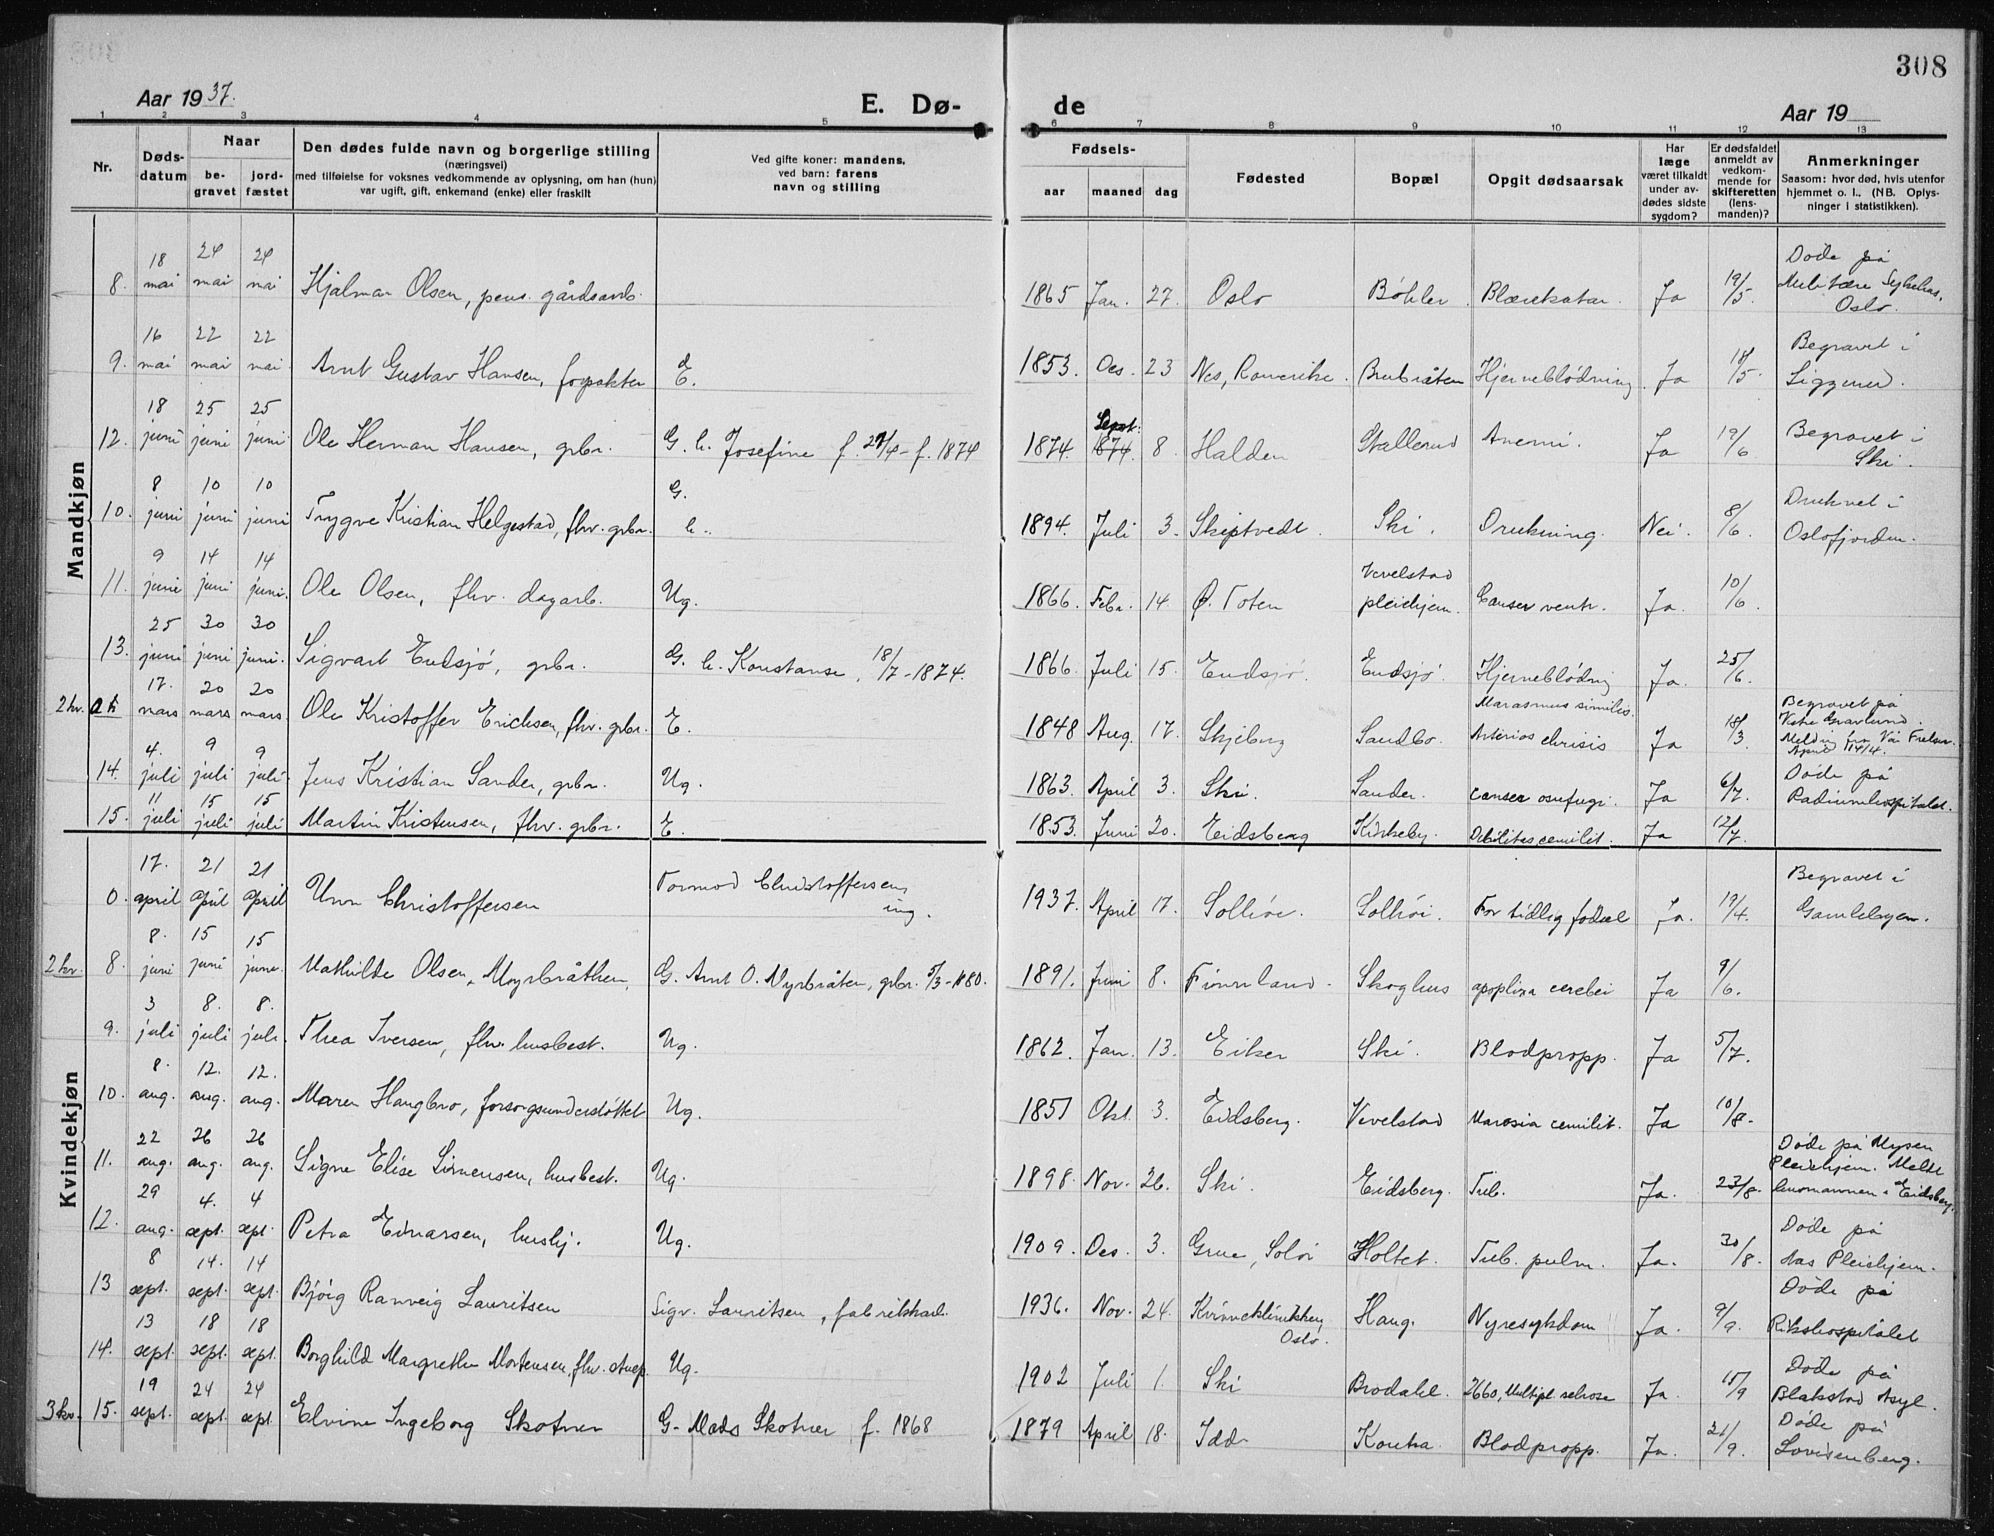 308
Aar 1937.
E. Dø-
de
Aar 19
1 2 3 4 5 6 7 8 9 10 11 12 13
Nr.
Døds-
datum
Naar
be-
gravet
jord-
fæstet
Den dødes fulde navn og borgerlige stilling
(næringsvei)
med tilføielse for voksnes vedkommende av oplysning, om han (hun)
var ugift, gift, enkemand (enke) eller fraskilt
Ved gifte koner: mandens,
ved barn: farens
navn og stilling
Fødsels-
aar maaned dag
Fødested
Bopæl
Opgit dødsaarsak
Har
læge
været tilkaldt
under av-
dødes sidste
sygdom?
Er dødsfaldet
anmeldt av
vedkom-
mende for
skifteretten
(lens-
manden)?
Anmerkninger
Saasom: hvor død, hvis utenfor
hjemmet o. l., (NB. Oplys-
ninger i statistikken).
Mandkjøn
8. 18 mai 24 mai 24 mai Hjalmar Olsen, pens. gårdsarb. 1865 Jan. 27. Oslo Bøhler Blærekatar. Ja 19/5. Døde på
Militære Sykehus,
Oslo.
9. 16 mai 22 mai 22 mai Arnt Gustav Hansen, forpakter E. 1853. Des. 23 Nes, Romerike. Brubråten Hjerneblødning Ja 18/5. Begravet i
12. 18 juni 25 juni 25 juni Ole Herman Hansen, grbr. G. m. Josefine f. 1874 1874. Sept. 8. Halden Stallerud Anemi. Ja 19/6 Begravet i
Ski.
10. 8 juni 10 juni 10 juni Trygve Kristian Helgestad, fhv. grbr. G. 1894. Juli 3. Skiptvedt. Ski. Drukning. Nei. 8/6. Druknet i
Oslofjorden.
11. 9 juni 14 juni 14 juni. Ole Olsen, fhv. dagarb. Ug. 1866. Febr. 14. Ø. Toten Vevelstad
pleiehjem. Canser ventr. Ja. 10/6.
13. 25 juni 30 juni 30 juni. Sigvart Endsjø, grbr. G. m. Konstanse, 18/7-1874. 1866. Juli 15. Endsjø. Endsjø. Hjerneblødnig Ja. 25/6.
2 kv. 17. mars 20 mars 20 mars. Ole Kristoffer Erichsen, fhv. grbr. E. 1848 Aug. 17. Skjeberg Sandbo. Marasmus similis.
Ja 18/3. Begravet på
Vestre Gravlund.
Melding fra Vår Frelser
April 14/4.
14. 4. juli 9 juli 9 juli. Jens Kristian Sander, grbr. Ug. 1863. April 3. Ski. Sander. Canser osufugi. Ja 6/7. Døde på
Radiumhospitalet.
15. 11 juli 15 juli 15 juli Martin Kristensen, fhv. grbr. E. 1853. Juni 20. Eidsberg Kirkeby. Debilitas cemilit. Ja 12/7.
Kvindekjøn
0. 17. april 21 april 21 april Unn Christoffersen Tormod Christoffersen,
ing. 1937. April 17. Solhøi. Solhøi. For tidlig fødsel Ja. 19/4. Begravet i
Gamlebyen.
2 kv. 8. 8. juni 15 juni 15 juni. Mathilde Olsen Myrbråthen, G. Arnt O. Myrbråten, grbr. 5/3-1880. 1891. Juni 8. Finnland. Skoghus apoplixa cerebri Ja 9/6.
9. 3 juli 8. juli 8. juli. Thea Iversen, fhv. husbest. Ug. 1862. Jan. 13. Eiker Ski. Blodpropp. Ja 5/7.
10. 8. aug. 12. aug. 12. aug. Maren Haugbro, forsorgsunderstøttet Ug. 1851 Okt. 3. Eidsberg. Vevelstad Marasia cemilit. Ja 10/8.
11. 22 aug. 26 aug. 26 aug. Signe Elise Simensen, husbest. Ug. 1898. Nov. 26. Ski. Eidsberg. Tub. Ja. 23/8. Døde på Mysen
Pleiehjem. Meldt
lensmannen i Eidsberg.
12. 29 aug. 4. sept. 4 sept. Petra Einarsen, hushj. Ug. 1909. Des. 3. Grue, Solør Holtet. Tub. pulm. Ja. 30/8. Døde på
Aas Pleiehjem.
13 8 sept. 14. sept. 14 sept. Bjørg Ranveig Lauritsen Sigv. Lauritsen, fabrikkarb. 1936. Nov. 24. Kvinneklinikken,
Oslo. Haug. Nyresykdom Ja. 9/9. Døde på
Rikshospitalet
14. 13 sept. 18 sept. 18 sept. Borghild Margrethe Mortensen, fhv. Ug. 1902 Juli 1. Ski Brodahl. 2660, Multipl. sclrose Ja. 15/9 Døde på
Blakstad Asyl.
3 kv. 15. 19 sept. 24 sept. 24 sept. Elvine Ingeborg Skotner G. Mads Skotner f. 1868 1879 April 18. Idd. Kontra. Blodpropp. Ja. 21/9. Døde på
Lovisenberg.